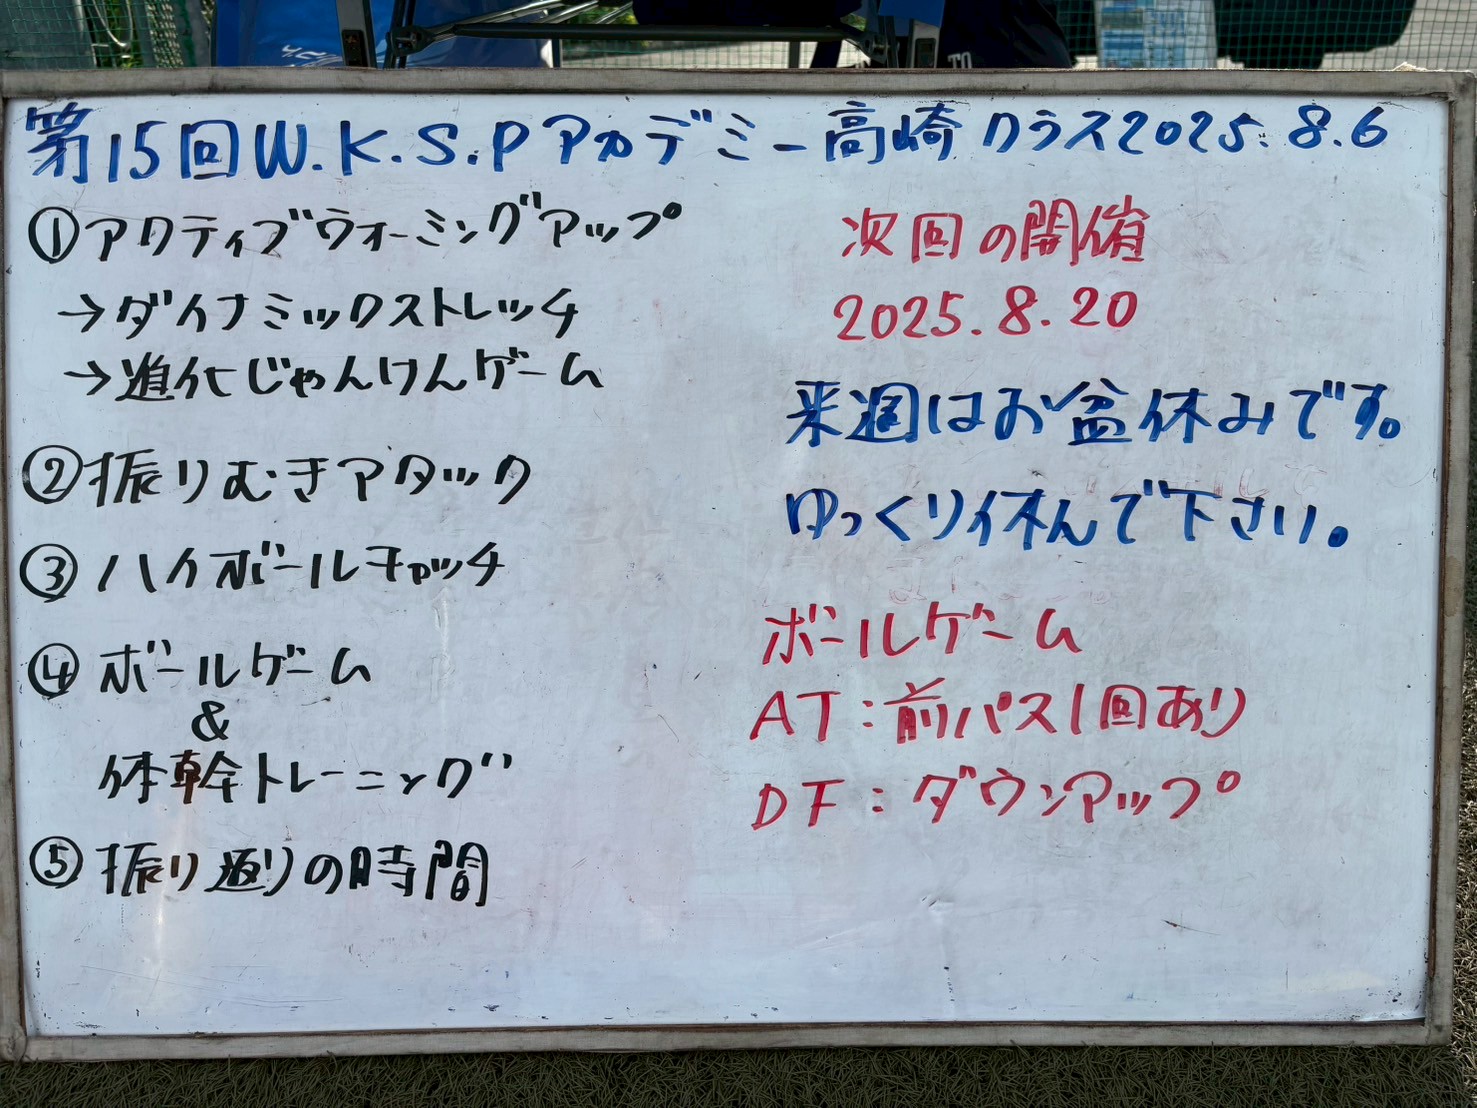 第15回W.K.S.Pアカデミー高崎クラス2025.8.6
①アクティブウォーミングアップ
→ダイナミックストレッチ
→進化じゃんけんゲーム
②振りむきアタック
③ハイボールキャッチ
④ボールゲーム
&
体幹トレーニング
⑤振り返りの時間
次回の開催
2025.8.20
来週はお盆休みです。
ゆっくり休んで下さい。
ボールゲーム
AT:前パス1回あり
DF:ダウンアップ